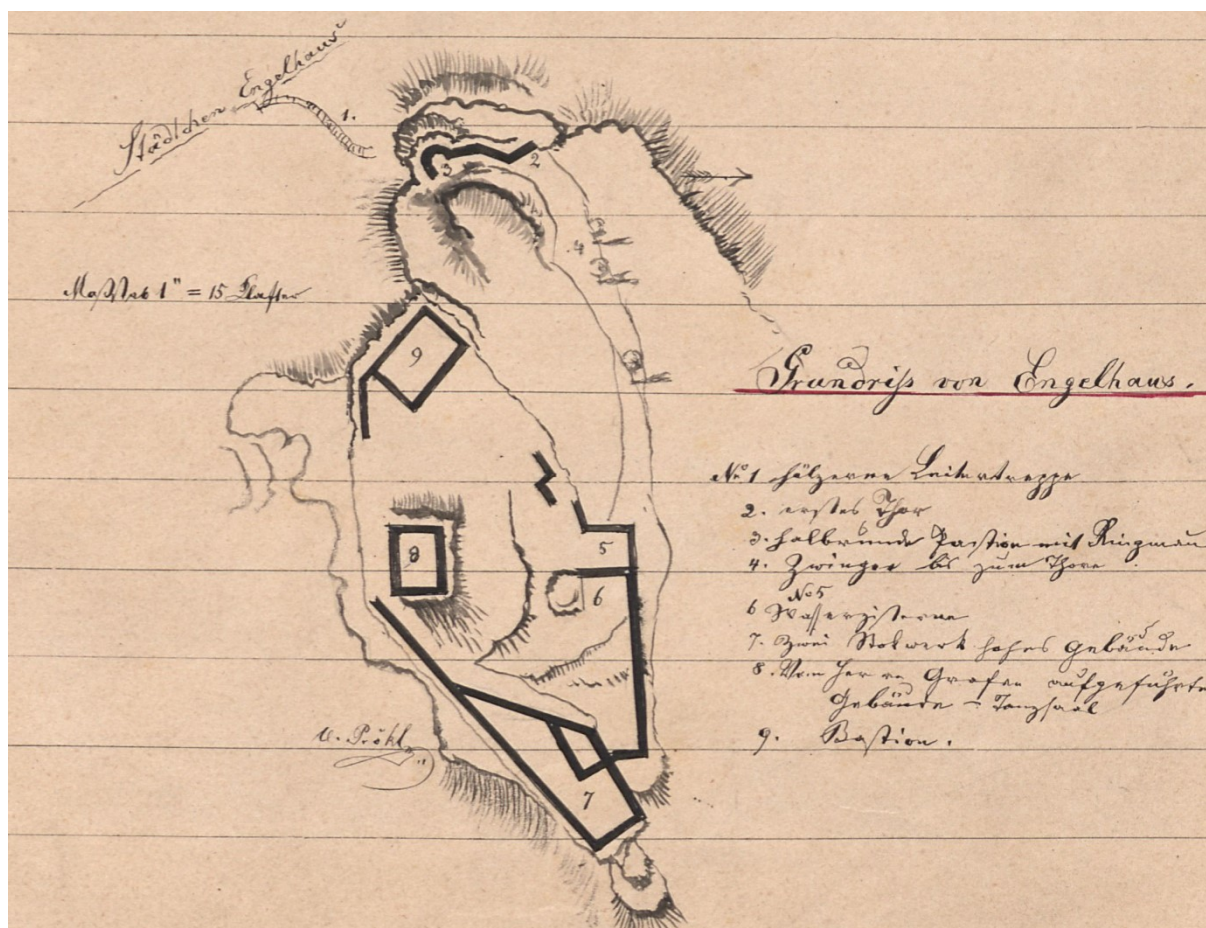 Städtchen Engelhaus
1.
2
3
4
Maßstab 1" = 15 Klafter
9
Grundriß von Engelhaus.
No 1 hölzerne Leitertreppe
2. erstes Thor
3. halbrunde Pastion mit Ringmau
4. Zwinger bis zum Thore
No 5
6 Wasserzisterne
7. Zwei Stokwerk hohes Gebäude
8. Vom Herrn Grafen aufgeführte
Gebäude - Tanzsaal
9. Bastion.
5
8
6
7